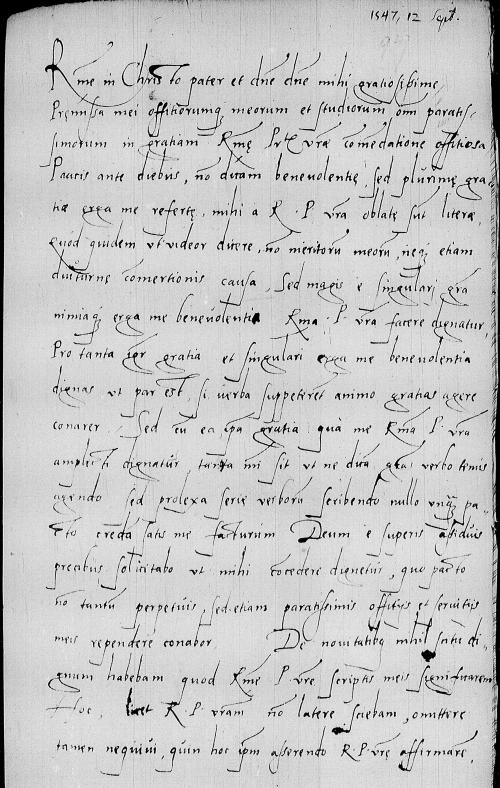 1547, 12 Sept.
Rme in Christo pater et dne dne mihi gratiosissime
Premissa mei offitiorumq meorum et studiorum omi paratis-
simorum in gratiam Rme Prs vrae comedatione offitiosa
Paucis ante diebus, no duam benevolentie, sed plurime gra
tie erga me referte, mihi a R. P. vra oblate sut litere,
quod quidem ut videor dicere, no meritoru meoru, neq etiam
diuturne comertionis causa, sed magis e singulari gra
nimiaq erga me benevolentia Rma. P. vra facere dignatur.
Pro tanta igr gratia et singulari erga me benevolentia
dignas ut par est, si verba suppeteret animo gratias agere
conarer. Sed cu ea ipa gratia qua me Rma P. vra
amplecti dignatur, tanta mi sit ut ne dum gras verbo tenus
agendo sed prolexa serie verboru scribendo nullo unq pa-
cto creda satis me facturum Deum e superis assiduis
precibus solicitabo ut mihi cocedere dignetur, quo pacto
no tantu perpetuis, sed etiam paratissimis offitiis et servitiis
meis rependere conabor. De novitatibq nihil scitu di-
gnum habebam quod Rme P. vre scriptis meis significarem
Hoc, licet R. P. vram no latere sciebam, omittere
tamen nequivi, quin hoc ipm asserendo R. P. vre affirmare,